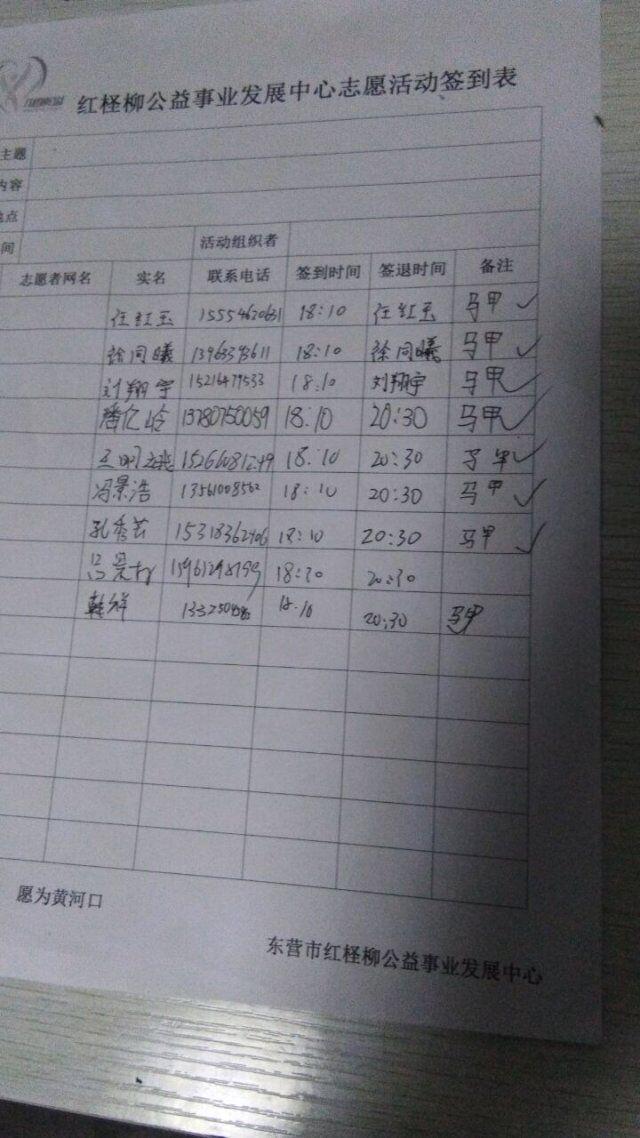 红柽柳公益事业发展中心志愿活动签到表
主题
内容
地点
间
活动组织者
志愿者网名 实名 联系电话 签到时间 签退时间 备注
任红玉 15554620631 18:10 任红玉 马甲 ✓
徐同曦 13963393611 18:10 徐同曦 马甲 ✓
刘翔宇 15216479533 18:10 刘翔宇 马甲 ✓
潘亿岭 13780750059 18:10 20:30 马甲 ✓
18:10 20:30 马甲 ✓
冯景浩 13561008562 18:10 20:30 马甲 ✓
孔秀芸 15318362406 18:10 20:30 马甲 ✓
18:30 20:30
韩祥 18:10 20:30 马甲
愿为黄河口
东营市红柽柳公益事业发展中心